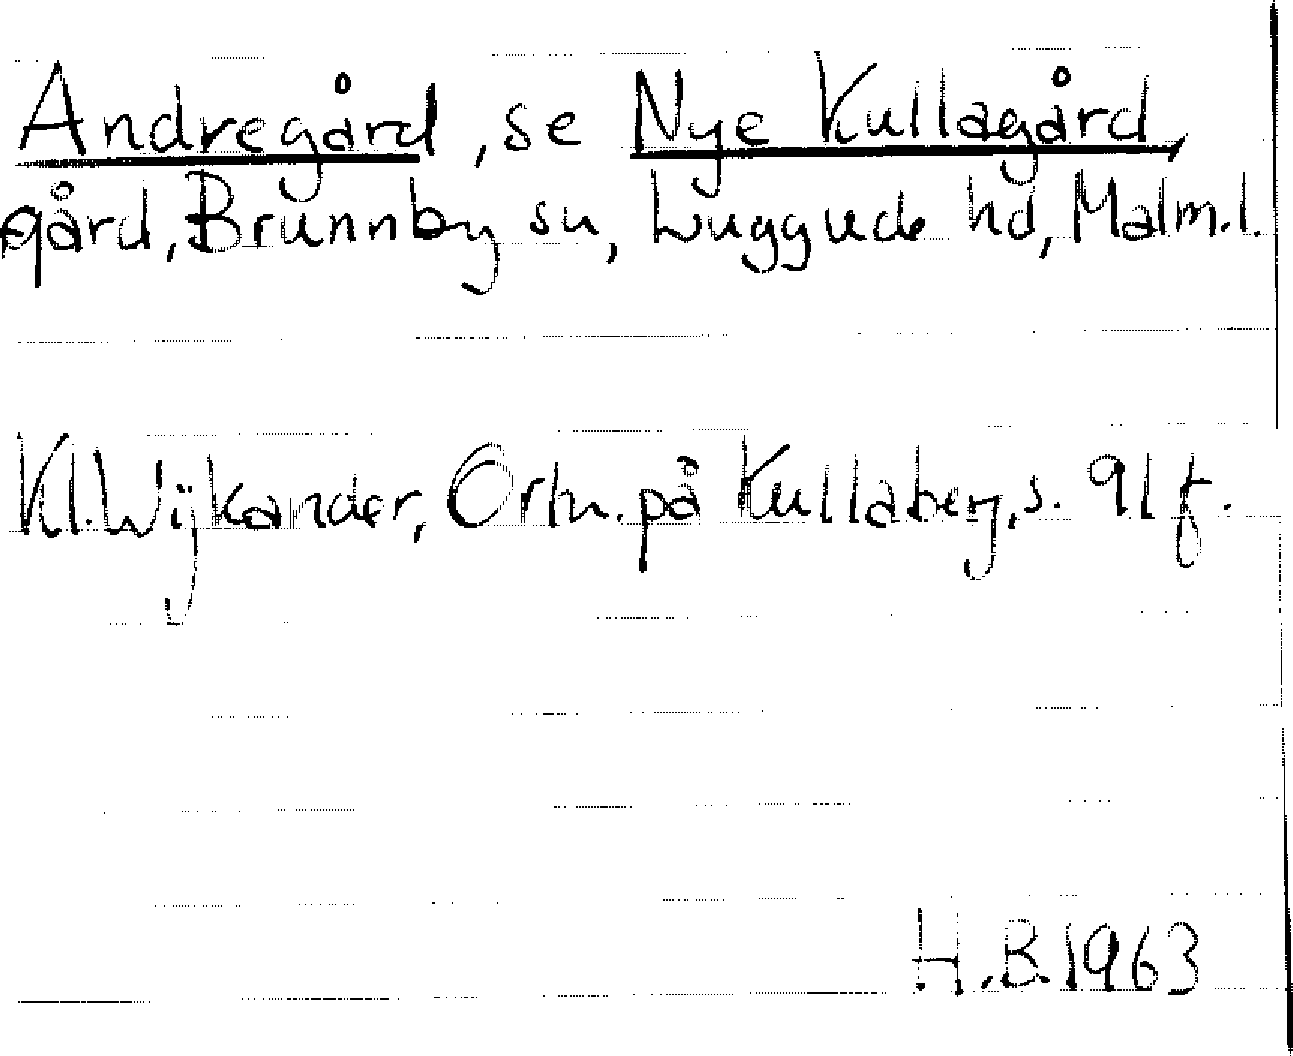 Andregård, se Nye Kullagård,
gård, Brunnby sn, Luggude hd, Malm.l.
Kl. Wijkander, Ortn. på Kullaberg, s. 91 f.
H.B. 1963